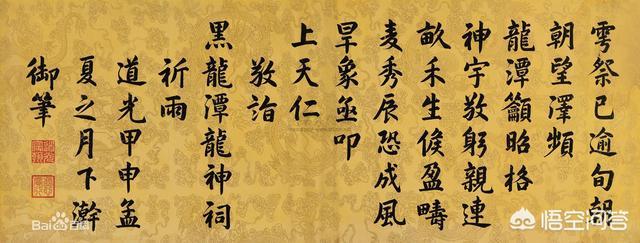 雩祭已逾旬朝
朝望澤頻
龍潭籲昭格
神宇敬躬親連
畝禾生倐盈疇
麦秀辰恐成風
旱象亟叩
上天仁
敬詣
黑龍潭龍神祠
祈雨
道光甲申孟
夏之月下澣
御筆
Bai 百科
悟空问答